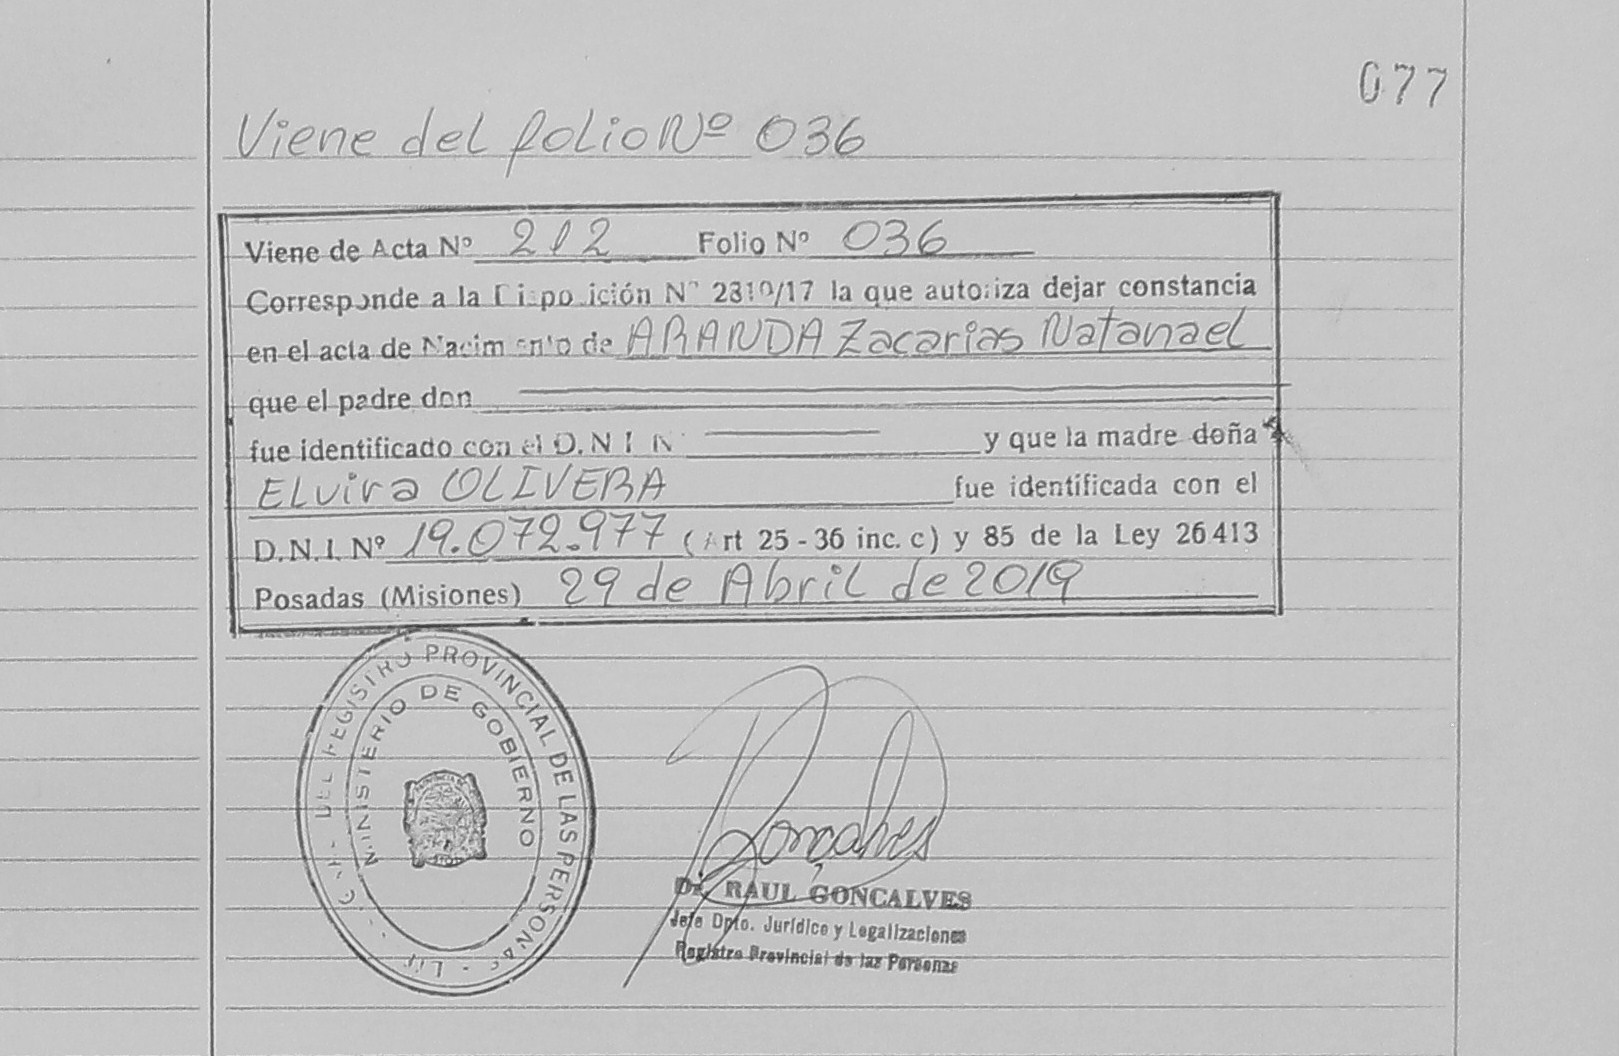 077
Viene del folio Nº 036
Viene de Acta Nº 212 Folio Nº 036
Corresponde a la Disposición Nº 2310/17 la que autoriza dejar constancia
en el acta de Nacimiento de ARANDA Zacarias Natanael
que el padre don
fue identificado con el D.N.I. Nº y que la madre doña
Elvira OLIVERA fue identificada con el
D.N.I. Nº 19.072.977 (Art 25 - 36 inc. c) y 85 de la Ley 26413
Posadas (Misiones) 29 de Abril de 2019
DEL REGISTRO PROVINCIAL DE LAS PERSONAS
MINISTERIO DE GOBIERNO
Goncalves
Dr. RAUL GONCALVES
Jefe Dpto. Jurídico y Legalizaciones
Registro Provincial de las Personas